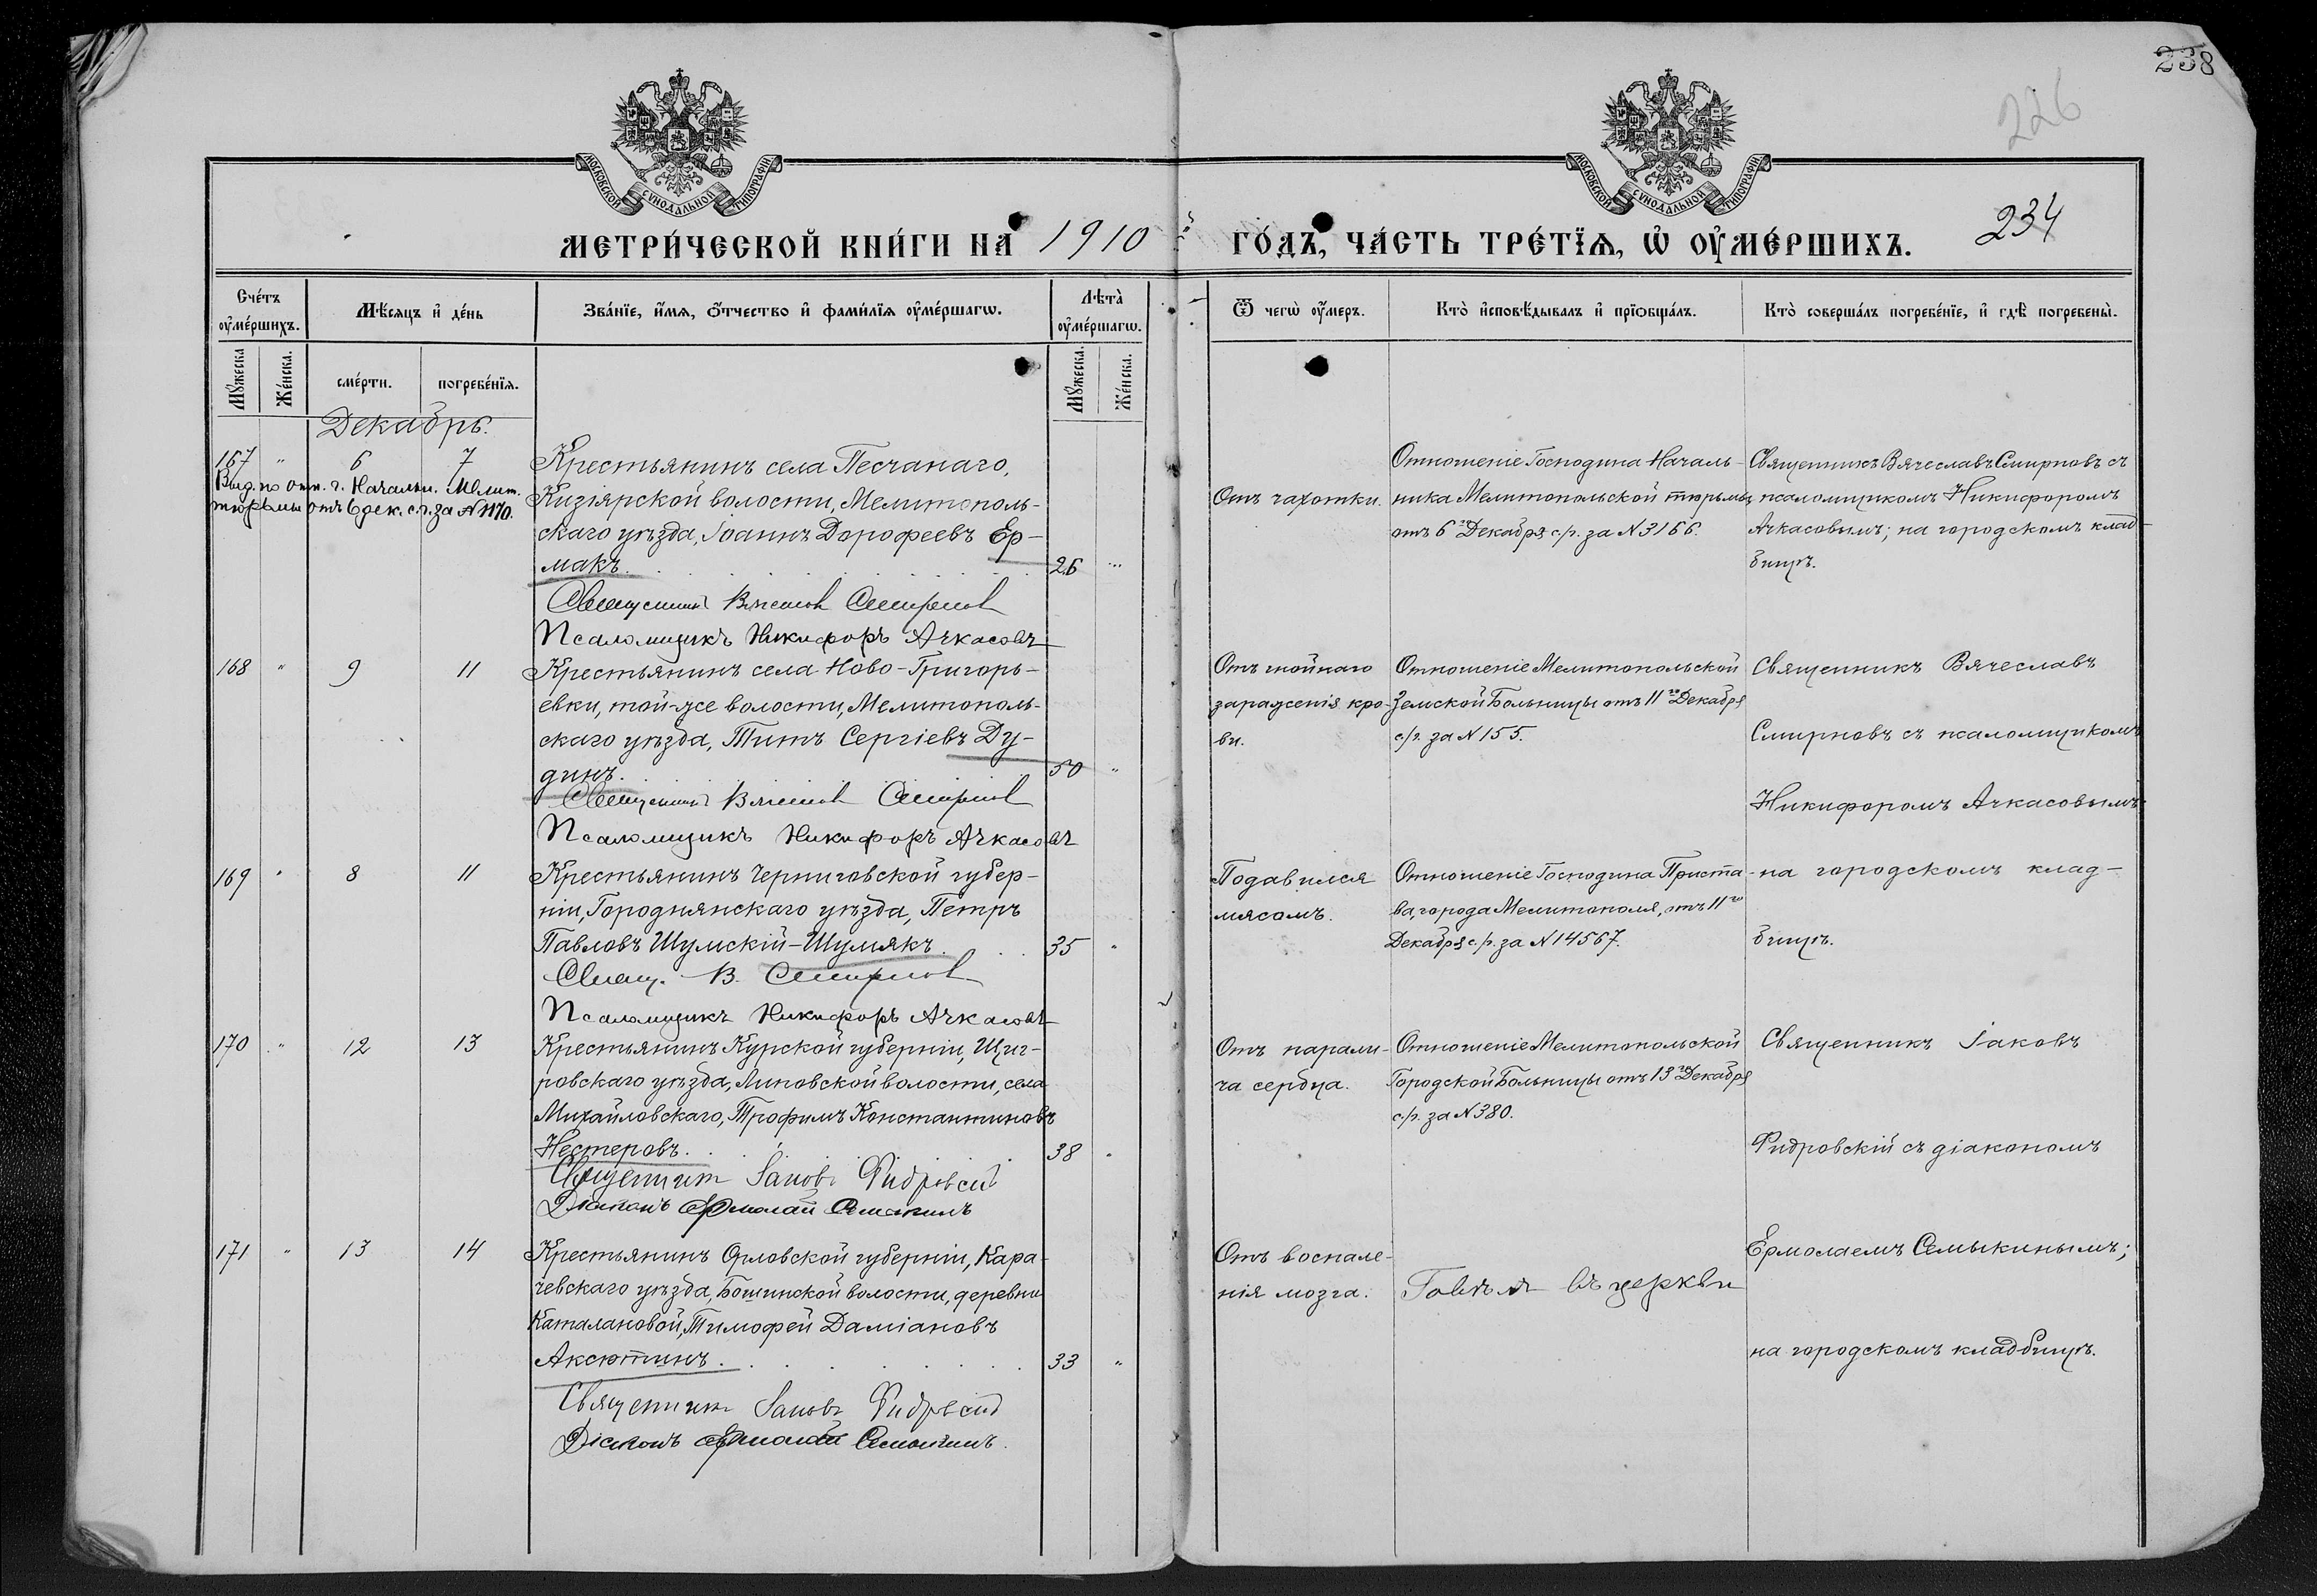 238
226
234
МОСКОВСКОЙ СѴНОДАЛЬНОЙ ТИПОГРАФІИ
МОСКОВСКОЙ СѴНОДАЛЬНОЙ ТИПОГРАФІИ
МЕТРИ́ЧЕСКОЙ КНИ́ГИ НА 1910 й ГО́ДЪ, ЧА́СТЬ ТРЕ́ТЇѦ, Ѡ҆ ОУ҆МЕ́РШИХЪ.
Сче́тъ оу҆ме́ршихъ.
Мѣ́сяцъ и҆ де́нь
Зва́нїе, и҆́мѧ, ѻ҆́тчество и҆ фами́лїѧ оу҆ме́ршагѡ.
Лѣ́та оу҆ме́ршагѡ.
Ѿ чегѡ̀ оу҆́меръ.
Кто̀ и҆сповѣ́дывалъ и҆ прїѻбща́лъ.
Кто̀ соверша́лъ погребе́нїе, и҆ гдѣ̀ погребены̀.
Мꙋ́жеска
Же́нска.
сме́рти.
погребе́нїѧ.
Мꙋ́жеска.
Же́нска.
Декабрь.
167 " 6 7
Выд. по отн. г. Начальн. Мелит.
тюрьмы отъ 6 дек. с.г. за № 3170.
Крестьянинъ села Песчанаго,
Кизіярской волости, Мелитополь-
скаго уѣзда, Іоаннъ Дорофеевъ Ер-
макъ. 26 "
Священникъ Вячеслав Смирнов
Псаломщикъ Никифоръ Ачкасовъ
Отъ чахотки.
Отношеніе Господина Началь-
ника Мелитопольской тюрьмы,
отъ 6го Декабря с/г. за № 3166.
Священникъ Вячеславъ Смирновъ съ
псаломщикомъ Никифоромъ
Ачкасовымъ; на городскомъ клад-
бищѣ.
168 " 9 11
Крестьянинъ села Ново-Григорь-
евки, той-же волости, Мелитополь-
скаго уѣзда, Титъ Сергіевъ Ду-
динъ. 50 "
Священникъ Вячеслав Смирнов
Псаломщикъ Никифоръ Ачкасовъ
Отъ гнойнаго
зараженія кро-
ви.
Отношеніе Мелитопольской
Земской Больницы отъ 11го Декабря
с/г. за № 155.
Священникъ Вячеславъ
Смирновъ съ псаломщикомъ
Никифоромъ Ачкасовымъ
169 " 8 11
Крестьянинъ Черниговской губер-
ніи, Городнянскаго уѣзда, Петръ
Павловъ Шумскій-Шумякъ. 35 "
Свящ. В. Смирнов
Псаломщикъ Никифоръ Ачкасовъ
Подавился
мясомъ.
Отношеніе Господина Приста-
ва, города Мелитополя, отъ 11го
Декабря с/г. за № 14567.
на городскомъ клад-
бищѣ.
170 " 12 13
Крестьянинъ Курской губерніи, Щиг-
ровскаго уѣзда, Липовской волости, села
Михайловскаго, Трофимъ Константиновъ
Нестеровъ. 38 "
Священникъ Іаковъ Фидровскій
Діаконъ Ермолай Семыкинъ
Отъ парали-
ча сердца.
Отношеніе Мелитопольской
Городской Больницы отъ 13го Декабря
с/г. за № 380.
Священникъ Іаковъ
Фидровскій съ діакономъ
171 " 13 14
Крестьянинъ Орловской губерніи, Кара-
чевскаго уѣзда, Бошинской волости, деревни
Каталановой, Тимофей Даміановъ
Аксютинъ. 33 "
Священникъ Іаковъ Фидровскій
Діаконъ Ермолай Семыкинъ.
Отъ воспале-
нія мозга.
Говѣлъ въ церкви
Ермолаемъ Семыкинымъ;
на городскомъ кладбищѣ.